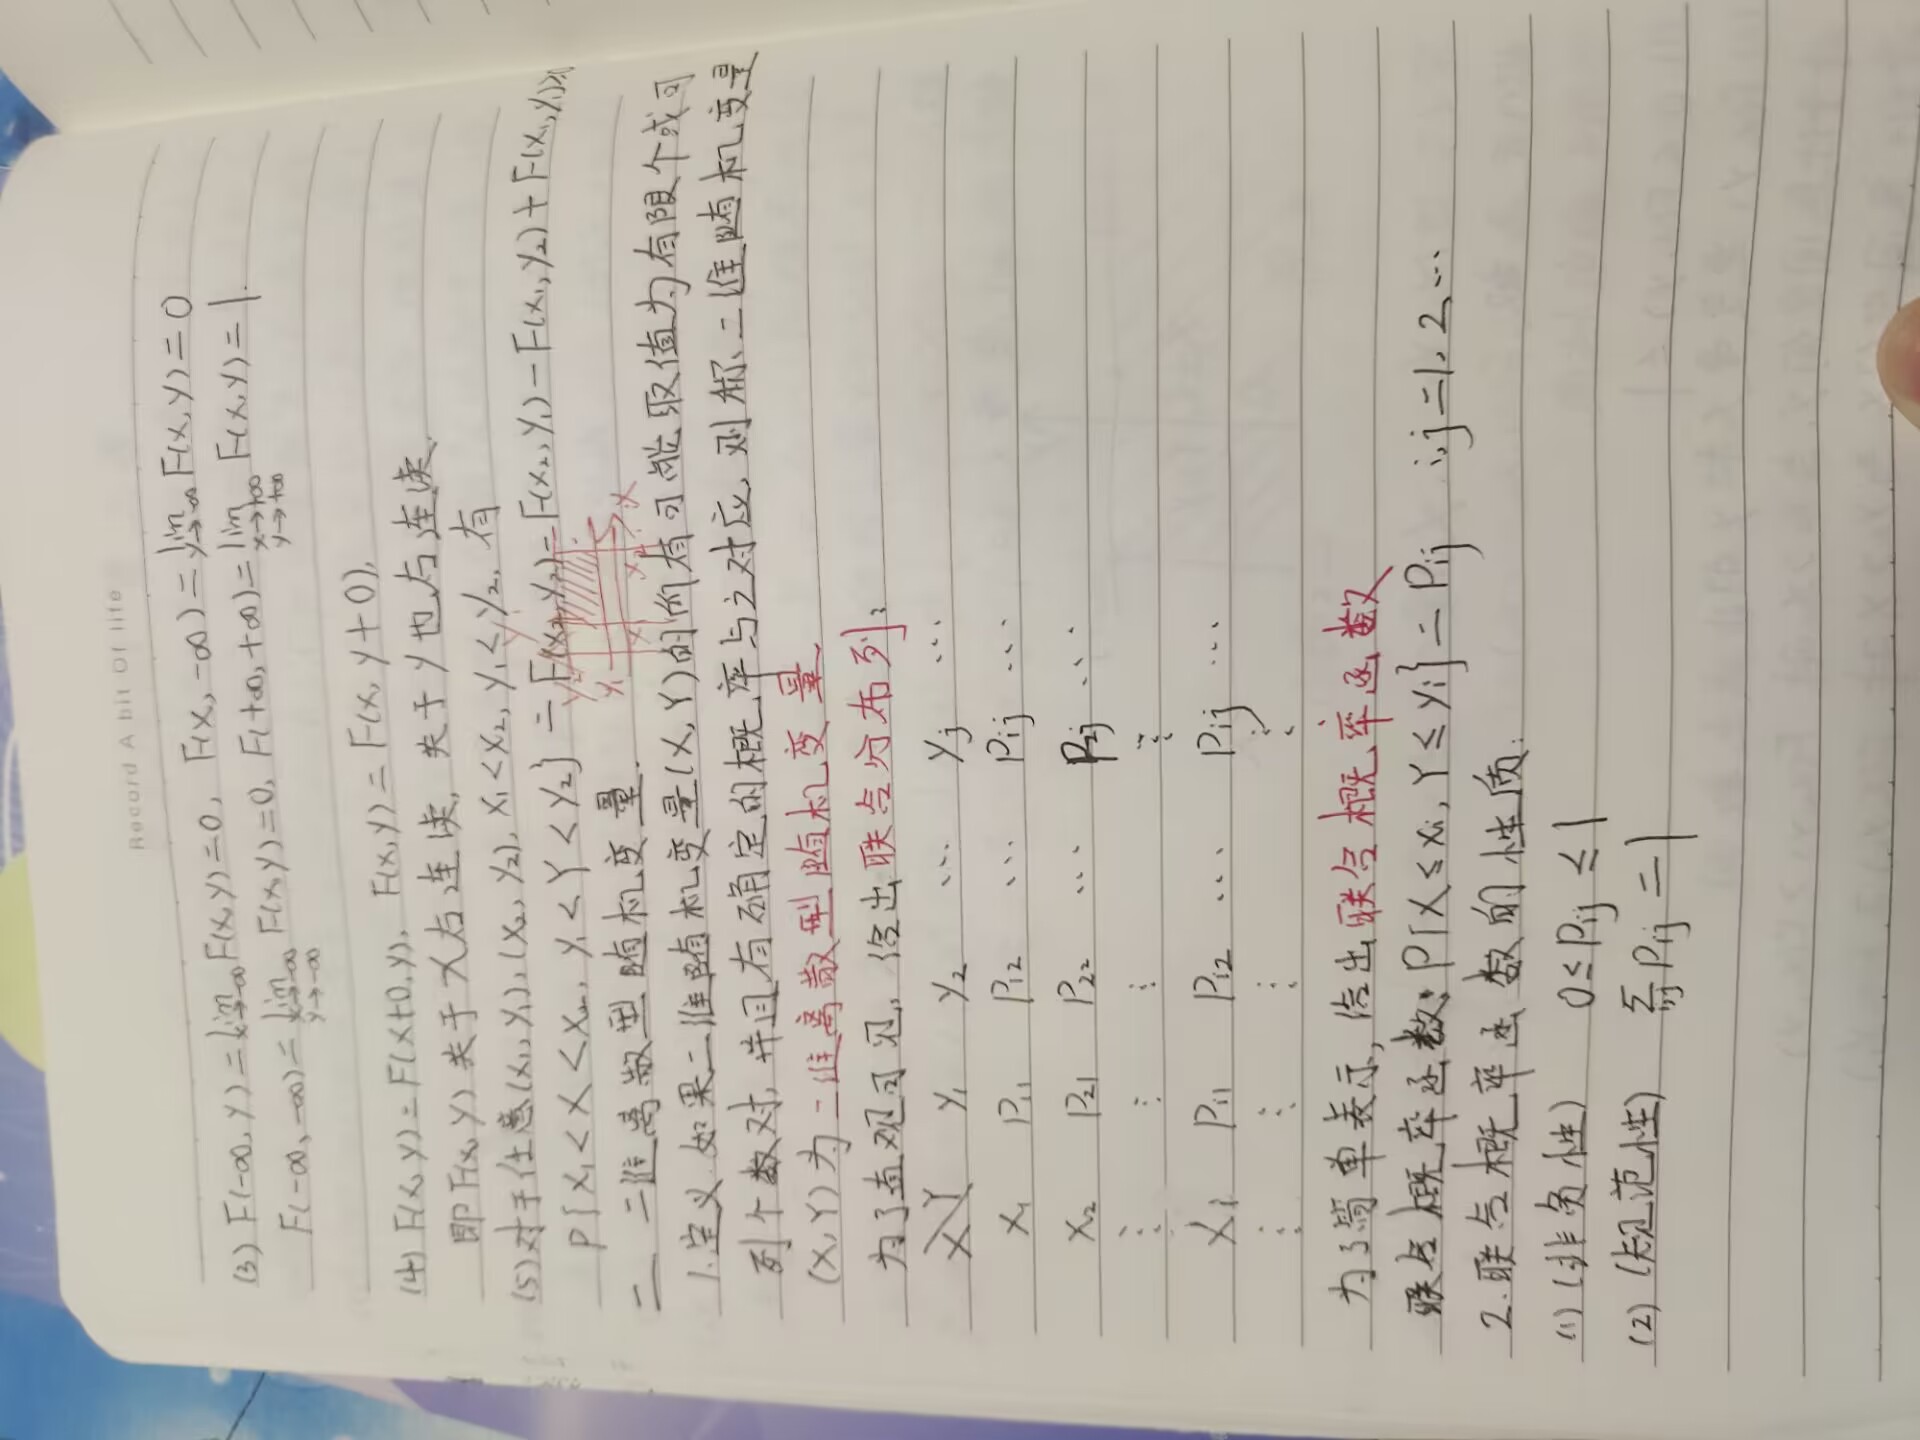 Record A bit Of life
(3) F(-∞, y) = lim x→-∞ F(x,y)=0, F(x,-∞) = lim y→-∞ F(x,y)=0
F(-∞,-∞) = lim x→-∞ y→-∞ F(x,y)=0, F(+∞,+∞) = lim x→+∞ y→+∞ F(x,y)=1.
(4) F(x,y)=F(x+0,y), F(x,y)=F(x,y+0),
即F(x,y)关于x右连续,关于y也右连续.
(5)对于任意(x₁,y₁),(x₂,y₂), x₁<x₂, y₁<y₂,有
P{x₁<X<x₂, y₁<Y<y₂} = F(x₂,y₂)-F(x₂,y₁)-F(x₁,y₂)+F(x₁,y₁)≥
y₂
y₁ x₁ x₂ x
二 二维离散型随机变量.
1.定义.如果二维随机变量(X,Y)的所有可能取值为有限个或可
列个数对,并且有确定的概率与之对应,则称二维随机变量
(X,Y)为二维离散型随机变量.
为了直观可见,给出联合分布列:
X Y y₁ y₂ … yj …
x₁ P₁₁ P₁₂ … Pij …
x₂ P₂₁ P₂₂ … P₂j …
⋮ ⋮ ⋮ ⋮
xi Pi1 Pi2 … Pij …
⋮ ⋮ ⋮ ⋮
为了简单表示,给出联合概率函数
联合概率函数: P{X≤xi, Y≤yi}=Pij i,j=1,2…
2.联合概率函数的性质:
(1)(非负性) 0≤Pij≤1
(2)(规范性) ∑ij Pij=1